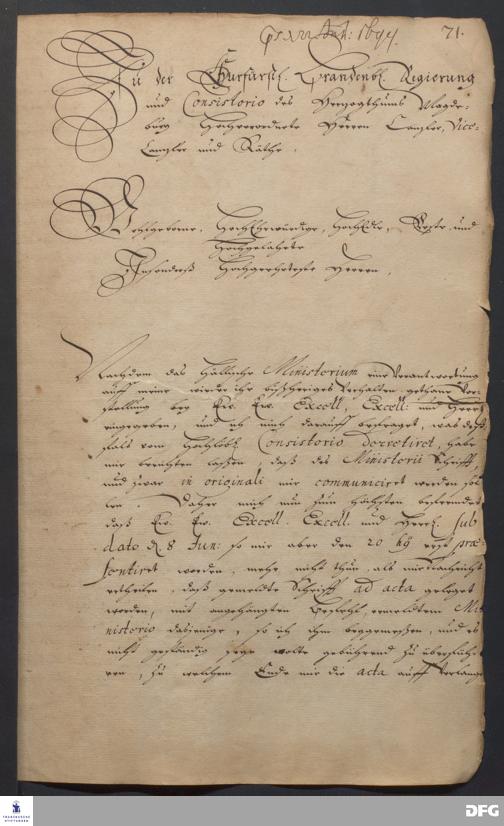 71.
Zu der Churfürstl. Brandenb. Regierung
und Consistorio des Herzogthums Magde-
burg Hochverordnete Herren Canzler, Vice-
Canzler und Räthe.
Wohlgeborne, HochEhrwürdige, HochEdle, Veste und
Hochgelahrte
Insonders Hochgeehrteste Herren,
Nachdem das Hällische Ministerium eine Verantwortung
auff meine wieder ihr bißheriges Verhalten gethane Vor-
stellung bey Ew. Ew. Excell. Excell: und Herrl.
eingegeben, und ich mich darauff befraget, was deß-
falß vom Hochlöbl. Consistorio decretiret, habe
mir berichten lassen, daß des Ministerii Schrifft
und zwar in originali mir communiciret werden sol-
len. Daher mich nun zum höchsten befremdet
daß Ew. Ew. Excell. Excell. und Herrl. sub
dato d. 8 Jun: so mir aber den 20 erst præ-
sentiret worden, mehr nicht thun, als mir Nachricht
ertheilen, daß gemeldte Schrifft ad acta geleget
worden, mit angehängten Befehl, ermeldtem Mi-
nisterio dasjenige, so ich ihm beygemeßen, und es
nicht geständig seyn wolte gebührend zu überführ-
ren, zu welchem Ende mir die acta auff Verlang
THE FRANCKESCHE STIFTUNGEN
DFG